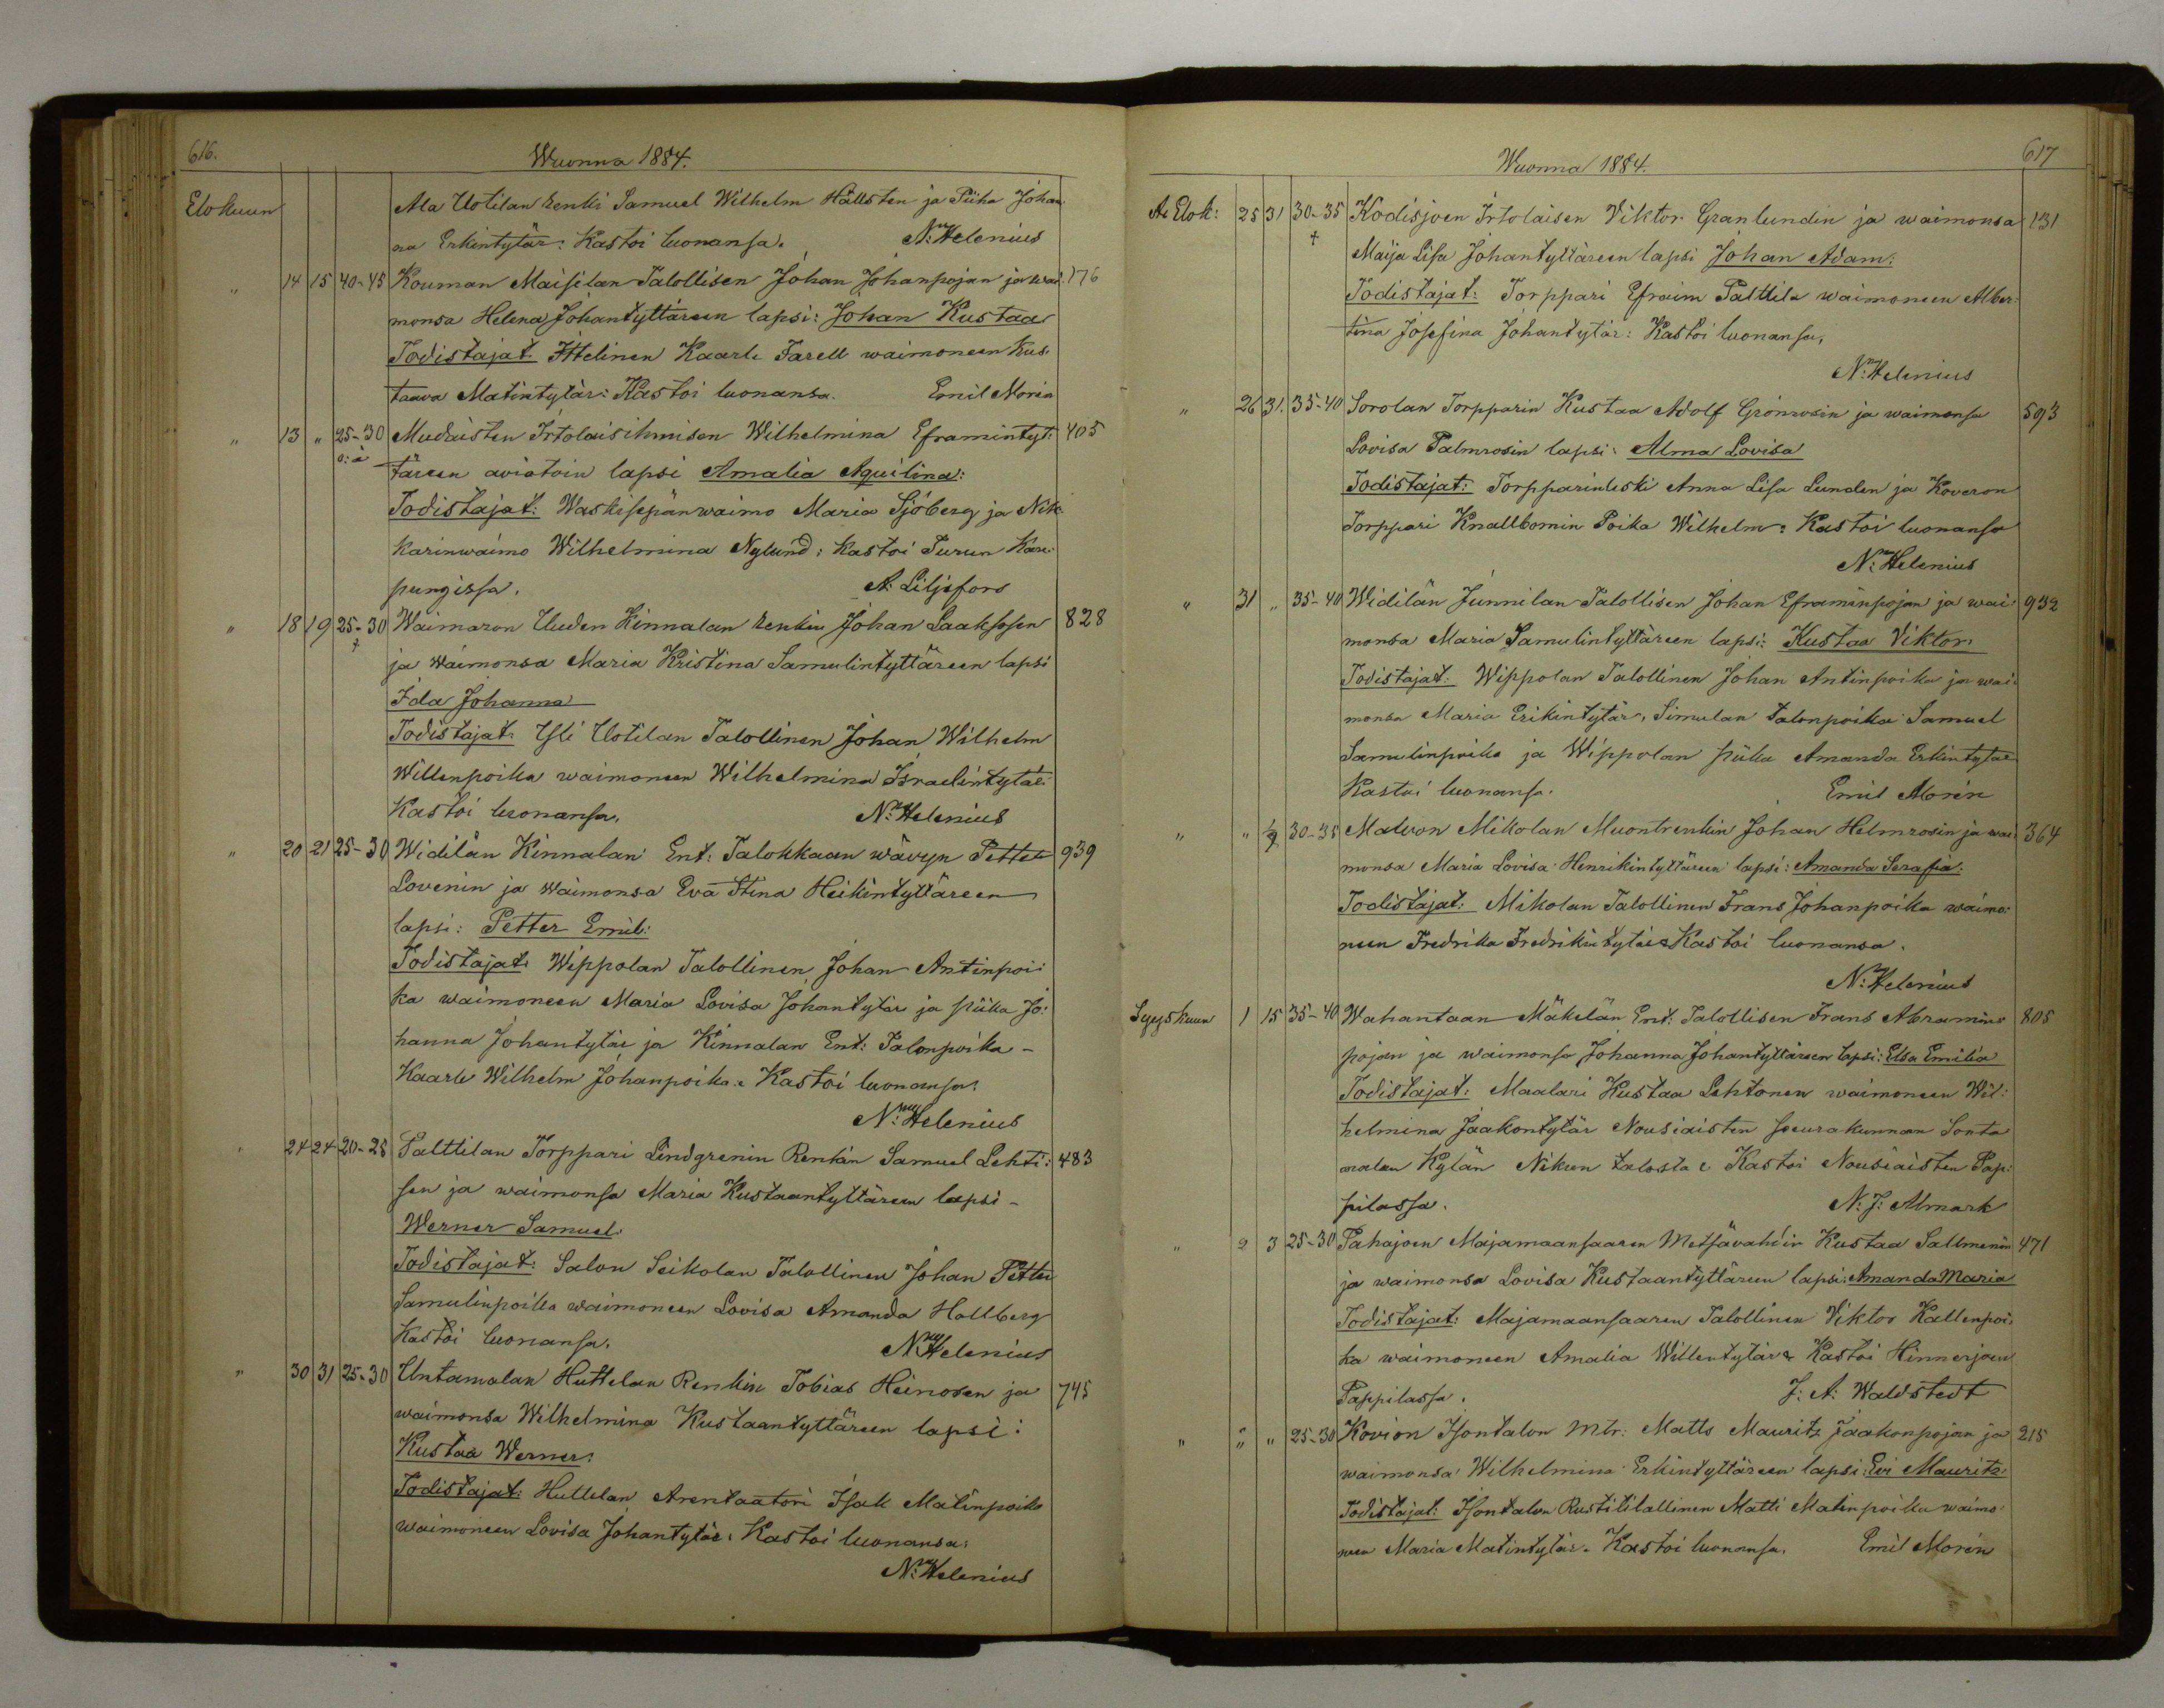 616.
Wuonna 1884.
Elokuun Ala Uotilan renki Samuel Wilhelm Hällsten ja Piika Johan
na Erkintytär: Kastoi luonansa. N:Helenius
" 14 15 40-45 Kouman Maisilan Talollisen Johan Johanpojan ja wai: 176
monsa Helena Johantyttären lapsi: Johan Kustaa
Todistajat. Ittelinen Kaarle Farell waimoneen Kus
taawa Matintytär: Kastoi luonansa. Emil Morin
" 13 " 25-30 Mudaisten Irtolaisihmisen Wilhelmina Eframintyt: 405
o: ä täreen aviotoin lapsi Amalia Aquilina:
Todistajat: Waskisepänwaimo Maria Sjöberg ja Nik
karinwaimo Wilhelmina Nylund: Kastoi Turun Kau:
pungissa. A. Liljefors
" 18 19 25-30 Waimaron Uuden Kinnalan renkin Johan Laaksosen 828
†
ja waimonsa Maria Kristina Samulintyttäreen lapsi
Ida Johanna
Todistajat: Yli Uotilan Talollinen Johan Wilhelm
Willenpoika waimoneen Wilhelmina Israelintytär:
Kastoi luonansa. N:Helenius
" 20 21 25-30 Widilän Kinnalan Ent: Talokkaan wävyn Petter 939
Lovenin ja waimonsa Eva Stina Heikintyttäreen
lapsi: Petter Emil:
Todistajat: Wippolan Talollinen Johan Antinpoi:
ka waimoneen Maria Lovisa Johantytär ja piika Jo:
hanna Johantytär ja Kinnalan Ent: Talonpoika -
Kaarle Wilhelm Johanpoika: Kastoi luonansa:
N:Helenius
24 24 20-25 Palttilan Torppari Lindgrenin Renkin Samuel Lehti: 483
sen ja waimonsa Maria Kustaantyttären lapsi -
Werner Samuel.
Todistajat: Salon Seikolan Talollinen Johan Petter
Samulinpoika waimoneen Lovisa Amanda Hallberg
Kastoi luonansa. N:Helenius
" 30 31 25-30 Untamalan Huttelan Renkin Tobias Heinosen ja 745
waimonsa Wilhelmina Kustaantyttäreen lapsi:
Kustaa Werner.
Todistajat: Huttelan Arentaatori Isak Matinpoika
waimoneen Lovisa Johantytär: Kastoi luonansa:
N:Helenius
617
Wuonna 1884.
A: Elok: 25 31 30-35 Kodisjoen Irtolaisen Viktor Granlundin ja waimonsa 131
†
Maija Lisa Johantyttäreen lapsi Johan Adam:
Todistajat: Torppari Efraim Palttila waimoneen Alber:
tina Josefina Johantytär: Kastoi luonansa,
N:Helenius
" 26 31. 35-40 Sorolan Torpparin Kustaa Adolf Grönrosin ja waimonsa 593
Lovisa Palmrosin lapsi: Alma Lovisa
Todistajat: Torpparinleski Anna Lisa Lunden ja Koveron
Torppari Knallbomin Poika Wilhelm: Kastoi luonansa
N:Helenius
" 31 " 35-40 Widilän Junnilan Talollisen Johan Eframinpojan ja wai 932
monsa Maria Samulintyttäreen lapsi: Kustaa Viktor.
Todistajat: Wippolan Talollinen Johan Antinpoika ja wai:
monsa Maria Erikintytär, Simulan talonpoika Samuel
Samulinpoika ja Wippolan piika Amanda Erkintytär
Kastoi luonansa. Emil Morin
" " 30-35 Mikolan Muontrenkin Johan Helmrosin ja wai 364
monsa Maria Lovisa Henrikintyttäreen lapsi: Amanda Serafia:
Todistajat: Mikolan Talollinen Frans Johanpoika waimo:
neen Fredrika Fredrikintytär: Kastoi luonansa.
N:Helenius
Syyskuun 1 15 35-40 Wahantaan Mäkelän Ent: Talollisen Frans Abramin 805
pojan ja waimonsa Johanna Johantyttäreen lapsi: Elsa Emilia
Todistajat: Maalari Kustaa Lehtonen waimoneen Wil:
helmina Jaakontytär Nousiaisten seurakunnan Sonta
malan Kylän Nikun talosta: Kastoi Nousiaisten Pap:
pilassa. N. J: Almark
" 2 3 25-30 Pahajoen Majamaansaaren Metsävahdin Kustaa Sallmenin 471
ja waimonsa Lovisa Kustaantyttäreen lapsi: Amanda Maria
Todistajat: Majamaansaaren Talollinen Viktor Kallenpoi
ka waimoneen Amalia Willentytär: Kastoi Hinnerjoen
Pappilassa. J: A: Waldstedt
" " " 25-30 Kovion Isontalon Mtr: Matts Mauritz Jaakonpojan ja 215
waimonsa Wilhelmina Erkintyttäreen lapsi: Evi Mauritz:
Todistajat: Isontalon Rustitilallinen Matti Matinpoika waimo:
nen Maria Matintytär. Kastoi luonansa. Emil Morin